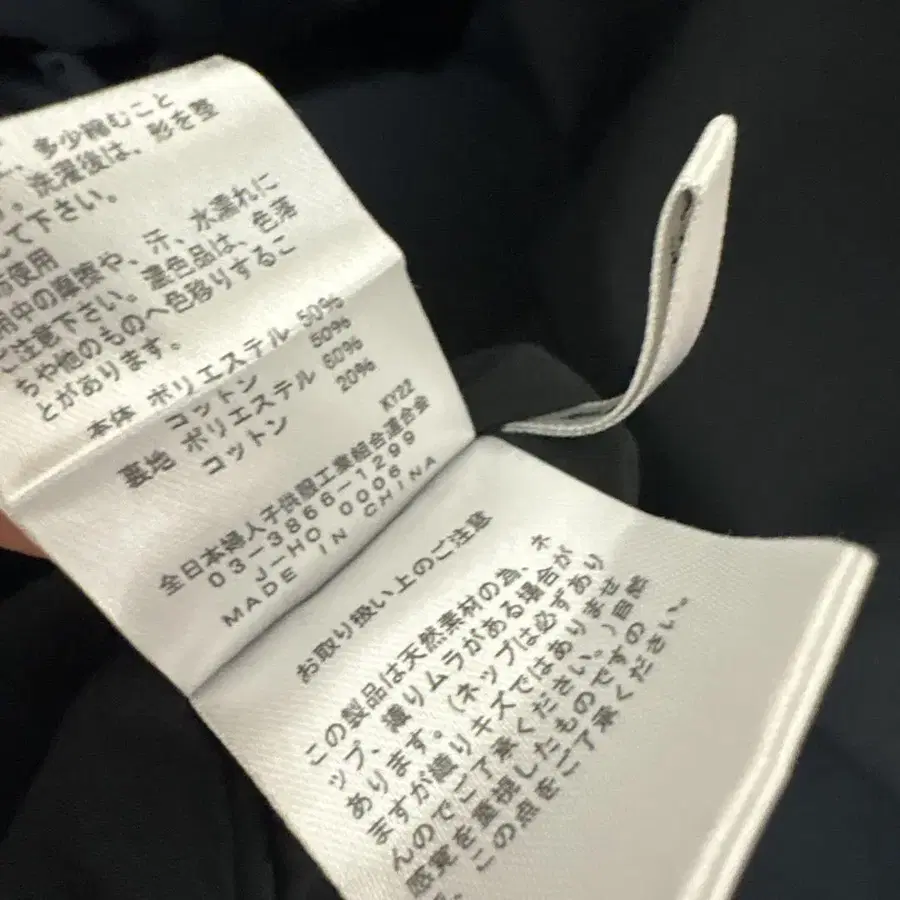 、多少縮むこと
。洗濯後は、形を整
して下さい。
使用
用中の摩擦や、汗、水濡れに
ご注意下さい。濃色品は、色落
ちや他のものへ色移りするこ
とがあります。
本体 ポリエステル 50%
コットン 50%
裏地 ポリエステル 80%
コットン 20%
KY22
全日本婦人子供服工業組合連合会
03-3866-1299
J-HO 0006
MADE IN CHINA
お取り扱い上のご注意
この製品は天然素材の為、ネ
ップ、織りムラがある場合が
あります。(ネップは必ずあり
ますが織りキズではありませ
んのでご了承ください。)自然
感覚を重視したものですの
、この点をご了承ください。